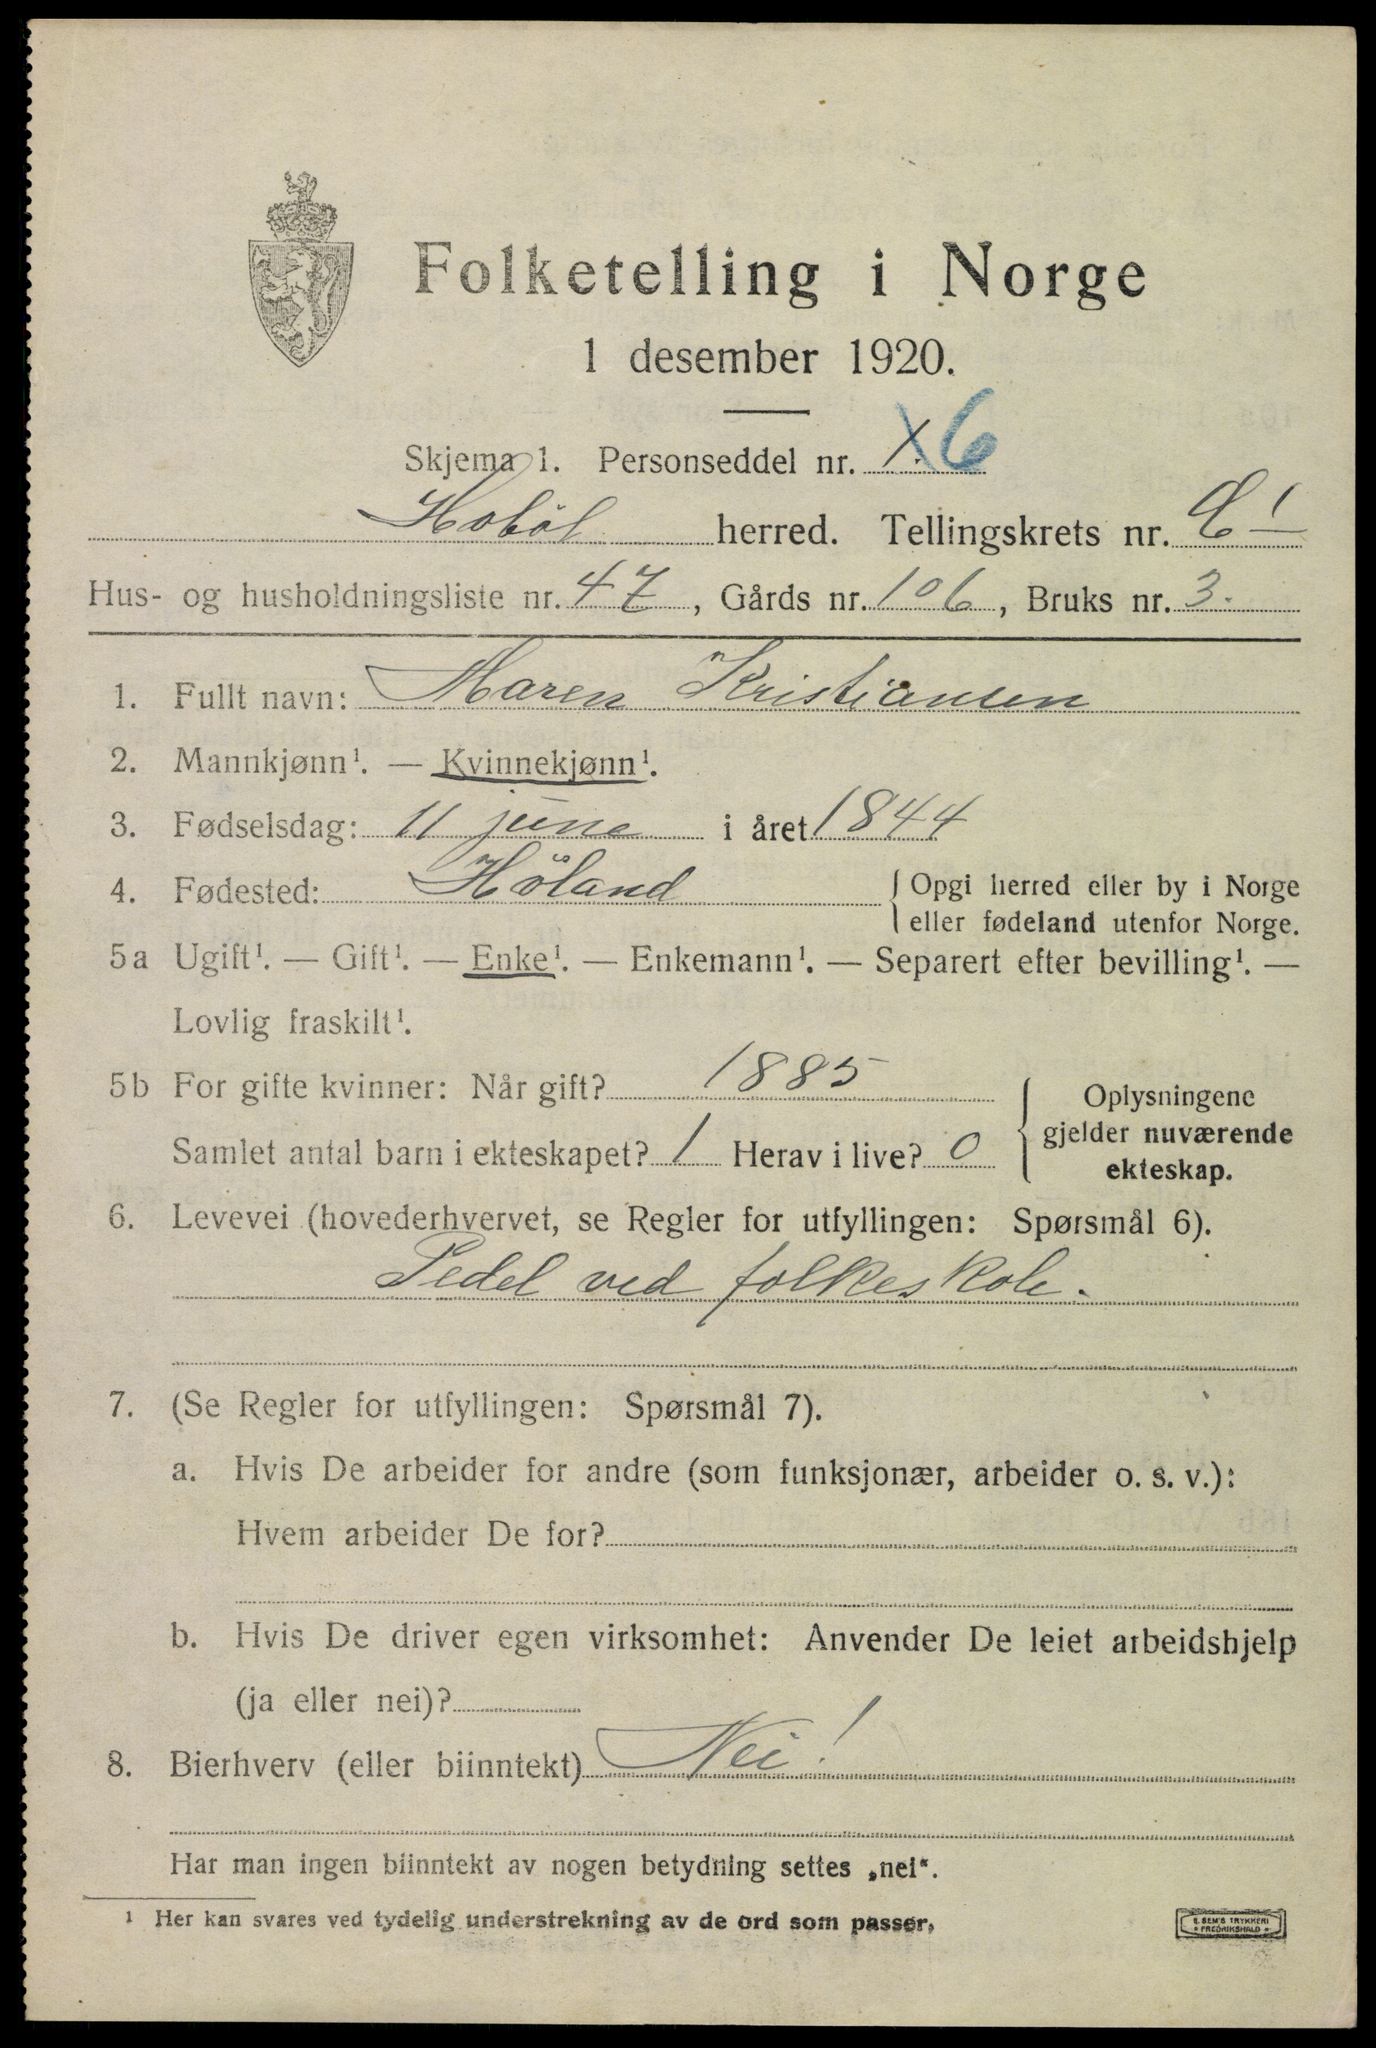 Folketelling i Norge
1 desember 1920.
Skjema 1. Personseddel nr. X6
Hobøl herred. Tellingskrets nr.
Hus- og husholdningsliste nr. 47, Gårds nr. 106, Bruks nr. 3.
1. Fullt navn: Maren Kristiansen
2. Mannkjønn¹. — Kvinnekjønn¹.
3. Fødselsdag: 11 june i året 1844
4. Fødested: Höland { Opgi herred eller by i Norge
eller fødeland utenfor Norge.
5a Ugift¹. — Gift¹. — Enke¹. — Enkemann¹. — Separert efter bevilling¹. —
Lovlig fraskilt¹.
5b For gifte kvinner: Når gift? 1885
Samlet antal barn i ekteskapet? 1 Herav i live? 0
{ Oplysningene
gjelder nuværende
ekteskap.
6. Levevei (hovederhvervet, se Regler for utfyllingen: Spørsmål 6).
Pedel ved folkeskole.
7. (Se Regler for utfyllingen: Spørsmål 7).
a. Hvis De arbeider for andre (som funksjonær, arbeider o. s. v.):
Hvem arbeider De for?
b. Hvis De driver egen virksomhet: Anvender De leiet arbeidshjelp
(ja eller nei)?
8. Bierhverv (eller biinntekt) Nei!
Har man ingen biinntekt av nogen betydning settes „nei“.
¹ Her kan svares ved tydelig understrekning av de ord som passer.
E. SEM'S TRYKKERI
FREDRIKSHALD